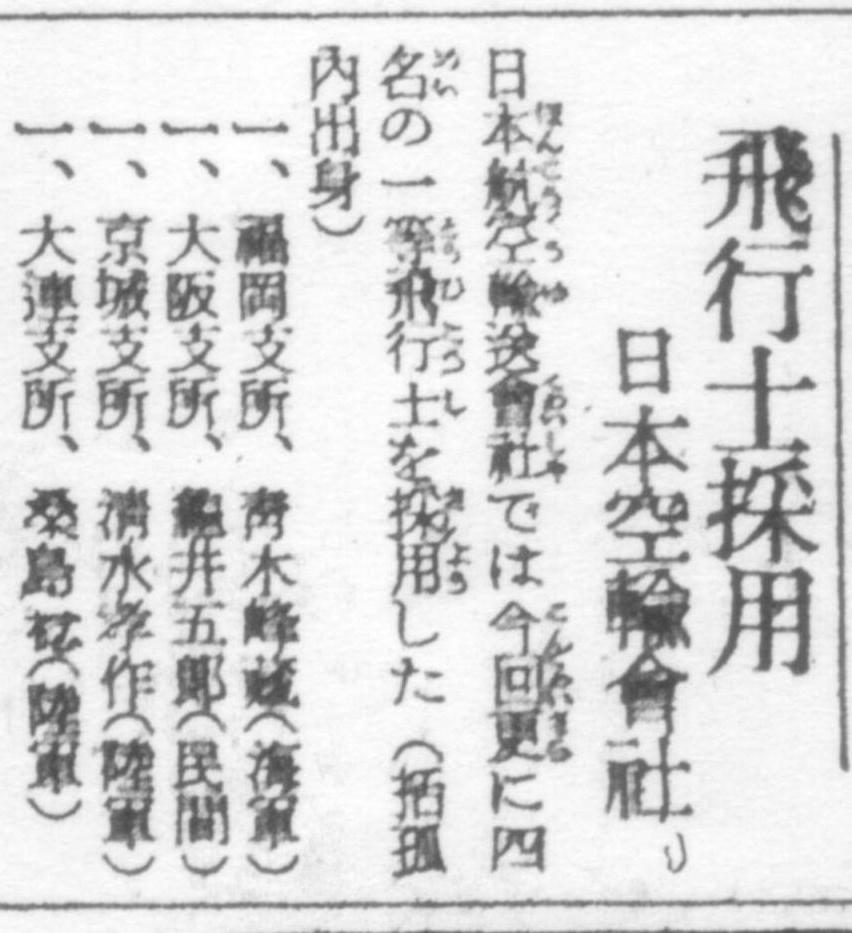 飛行士採用
日本空輸會社
日本航空輸送會社では今回更に四
名の一等飛行士を採用した（括孤
內出身）
一、福岡支所、靑木峰（海軍）
一、大阪支所、龜井五郞（民間）
一、京城支所、淸水孝作（陸軍）
一、大連支所、桑島（陸軍）